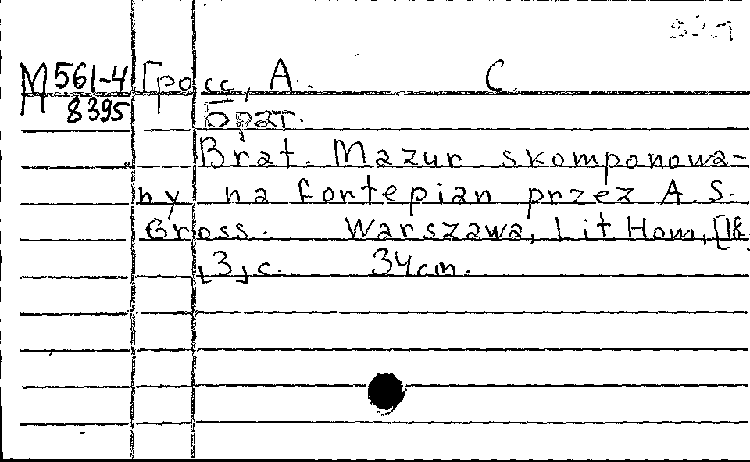 М 561-4 Гросс, А. С.
8395 Брат.
Brat. Mazur skomponowa-
ny na fortepian przez A. S.
Gross. Warszawa, Lit Hom, [18
[3] c. 34 cm.